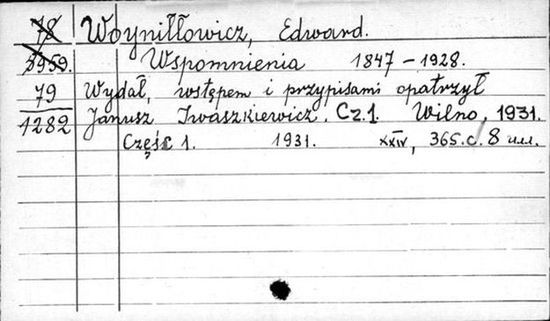 78 Woyniłłowicz, Edward.
3959. Wspomnienia 1847-1928.
79 Wydał, wstępem i przypisami opatrzył
1282 Janusz Iwaszkiewicz. Cz.1. Wilno, 1931.
Część 1. 1931. XXIV, 365.c./8 илл.